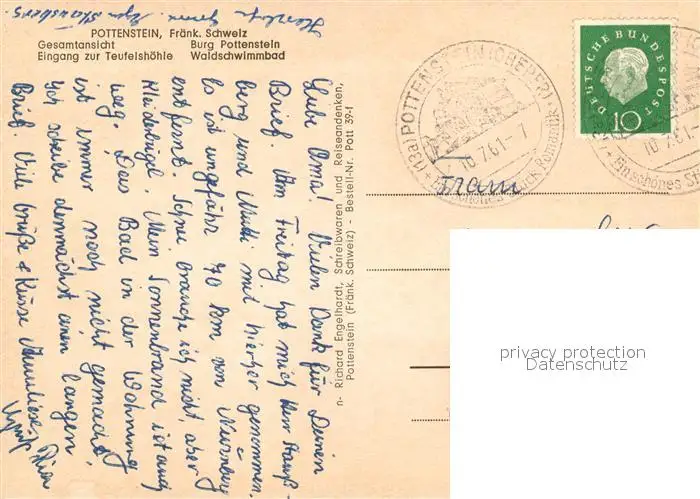 POTTENSTEIN, Fränk. Schweiz
Gesamtansicht Burg Pottenstein
Eingang zur Teufelshöhle Waldschwimmbad
Herzliche Grüße
Liebe Oma! Vielen Dank für Deinen
Brief. Am Freitag hat mich Herr
berg und Mutti mit hierher genommen.
Es ist ungefähr 70 km von Nürnberg
entfernt. brauche ich nicht, aber
Kleiderbügel. Mein Sonnenbrand ist auch
weg. Das Bad in der Wohnung
ist immer noch nicht gemacht.
Ich schreibe demnächst einen langen
Brief. Viele Grüße & Küsse Deine
n- Richard Engelhardt, Schreibwaren und Reiseandenken,
Pottenstein (Fränk. Schweiz) - Bestell-Nr. Pott 39-f
(13a) POTTENSTEIN (OBERFR)
10.7.61-7
DEUTSCHE BUNDESPOST
10
10.7.61
Einschönes St
Frau
privacy protection
Datenschutz